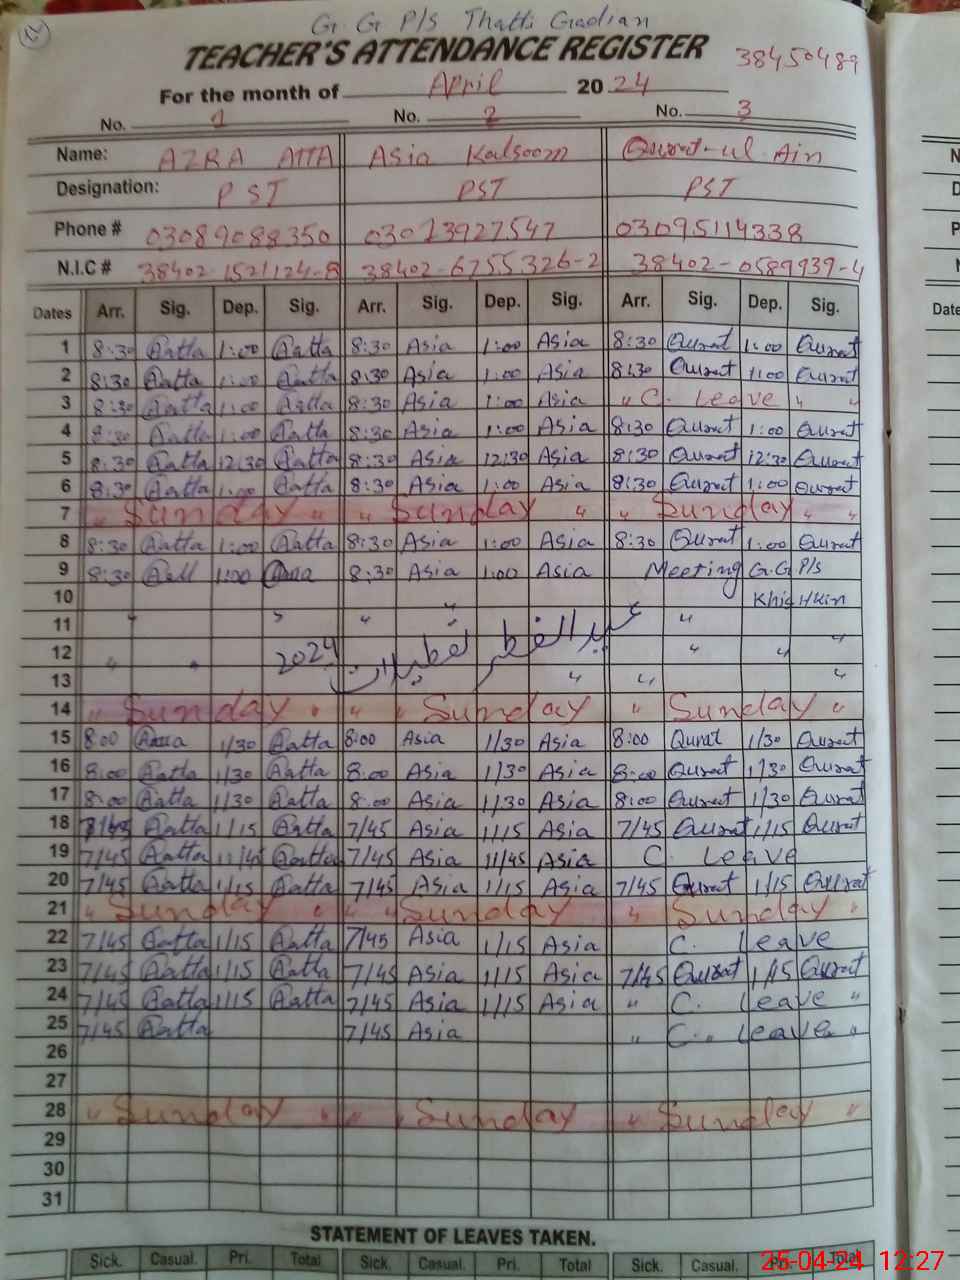 G. G P/S Thatti Gadian
TEACHER'S ATTENDANCE REGISTER 38450489
For the month of April 20 24
No. 1 No. 2 No. 3
Name: AZRA ATTA Asia Kalsoom Qurat-ul-Ain
Designation: PST PST PST
Phone # 03089088350 03013927547 03095114338
N.I.C # 38402-1521124-8 38402-6755326-2 38402-0589939-4
Dates Arr. Sig. Dep. Sig. Arr. Sig. Dep. Sig. Arr. Sig. Dep. Sig.
1 8:30 Aatta 1:00 Aatta 8:30 Asia 1:00 Asia 8:30 Qurat 1:00 Qurat
2 8:30 Aatta 1:00 Aatta 8:30 Asia 1:00 Asia 8:30 Qurat 1:00 Qurat
3 8:30 Aatta 1:00 Aatta 8:30 Asia 1:00 Asia " C. Leave " "
4 8:30 Aatta 1:00 Aatta 8:30 Asia 1:00 Asia 8:30 Qurat 1:00 Qurat
5 8:30 Aatta 12:30 Aatta 8:30 Asia 12:30 Asia 8:30 Qurat 12:30 Qurat
6 8:30 Aatta 1:00 Aatta 8:30 Asia 1:00 Asia 8:30 Qurat 1:00 Qurat
7 " Sunday " " Sunday " " Sunday " "
8 8:30 Aatta 1:00 Aatta 8:30 Asia 1:00 Asia 8:30 Qurat 1:00 Qurat
9 8:30 1:00 8:30 Asia 1:00 Asia Meeting G.G P/S
10
11 " " " "
عید الفطر تعطیلات 2024
12 " " " " "
13 " " "
14 " Sunday " " " Sunday " Sunday "
15 8:00 1/30 Aatta 8:00 Asia 1/30 Asia 8:00 Qurat 1/30 Qurat
16 8:00 Aatta 1/30 Aatta 8:00 Asia 1/30 Asia 8:00 Qurat 1/30 Qurat
17 8:00 Aatta 1/30 Aatta 8:00 Asia 1/30 Asia 8:00 Qurat 1/30 Qurat
18 7/45 Aatta 1/15 Aatta 7/45 Asia 1/15 Asia 7/45 Qurat 1/15 Qurat
19 7/45 Aatta 11/45 Aatta 7/45 Asia 11/45 Asia C. Leave
20 7/45 Aatta 1/15 Aatta 7/45 Asia 1/15 Asia 7/45 Qurat 1/15 Qurat
21 " Sunday " " " Sunday " Sunday "
22 7/45 Aatta 1/15 Aatta 7/45 Asia 1/15 Asia C. leave
23 7/45 Aatta 1/15 Aatta 7/45 Asia 1/15 Asia 7/45 Qurat 1/15 Qurat
24 7/45 Aatta 1/15 Aatta 7/45 Asia 1/15 Asia " C. Leave "
25 7/45 Aatta 7/45 Asia " C. Leave "
26
27
28 " Sunday " " " Sunday " Sunday "
29
30
31
STATEMENT OF LEAVES TAKEN.
Sick. Casual. Pri. Total Sick. Casual. Pri. Total Sick. Casual. Total
25-04-24 12:27